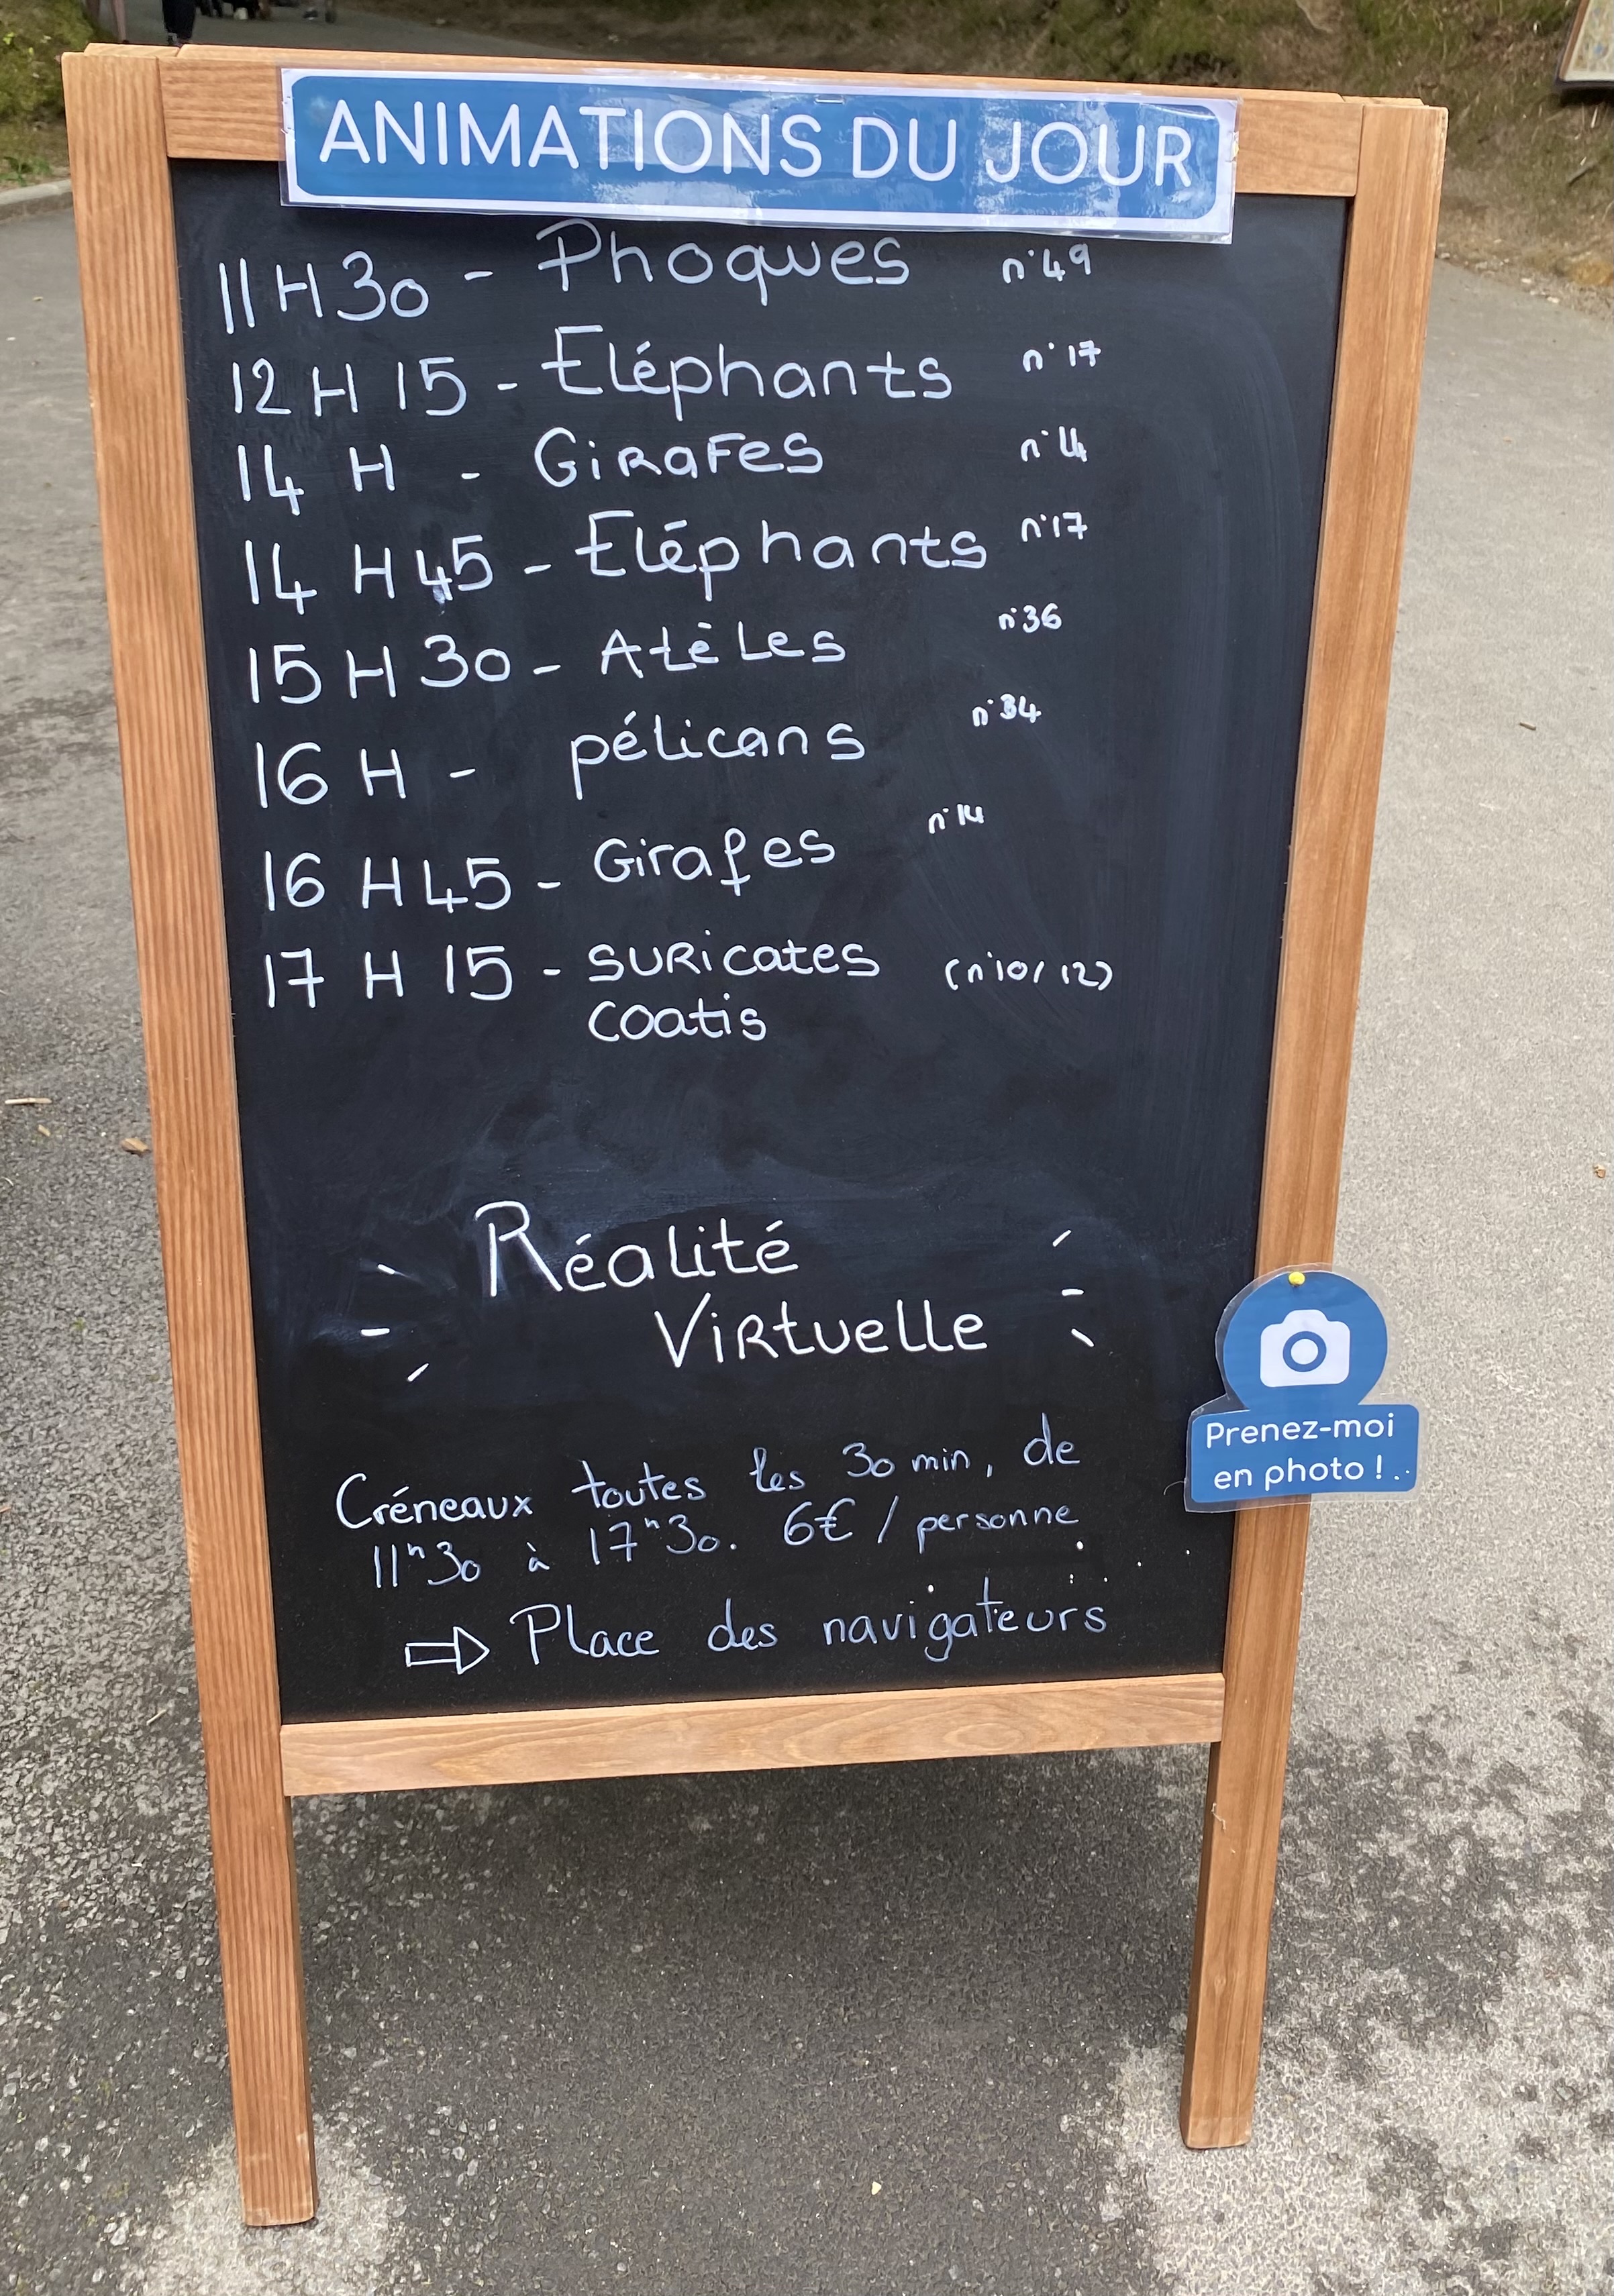 ANIMATIONS DU JOUR
11H30 - Phoques n°49
12 H 15 - Eléphants n°17
14 H - GiRaFes n°14
14 H 45 - Eléphants n°17
15 H 30 - Atèles n°36
16 H - pélicans n°34
16 H 45 - Girafes n°14
17 H 15 - suRicates (n°10/12)
coatis
Réalité
ViRtuelle
Créneaux toutes les 30 min, de
11h30 à 17h30. 6€ / personne
⇨ Place des navigateurs
Prenez-moi
en photo !